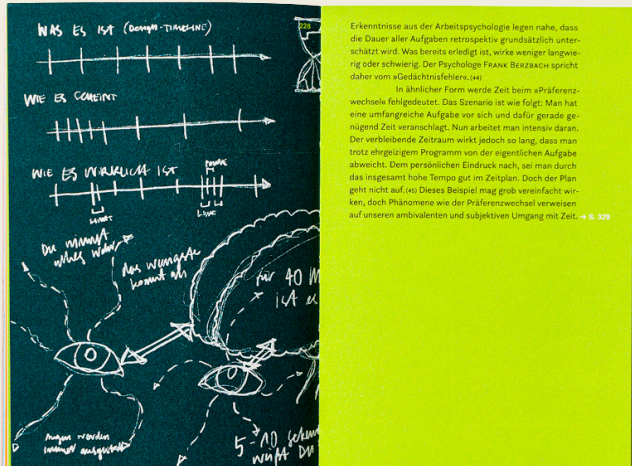 WAS ES IST (DESIGN-TIMELINE)
WIE ES SCHEINT
WIE ES WIRKLICH IST
PAUSE
Du nimmst
alles wahr
das wenigste
kommt an
für 40 M
ist e
Augen werden
immer ausgestellt
5-10 Sekun
weißt Du
228
Erkenntnisse aus der Arbeitspsychologie legen nahe, dass
die Dauer aller Aufgaben retrospektiv grundsätzlich unter-
schätzt wird. Was bereits erledigt ist, wirke weniger langwie-
rig oder schwierig. Der Psychologe FRANK BERZBACH spricht
daher vom »Gedächtnisfehler«.(44)
In ähnlicher Form werde Zeit beim »Präferenz-
wechsel« fehlgedeutet. Das Szenario ist wie folgt: Man hat
eine umfangreiche Aufgabe vor sich und dafür gerade ge-
nügend Zeit veranschlagt. Nun arbeitet man intensiv daran.
Der verbleibende Zeitraum wirkt jedoch so lang, dass man
trotz ehrgeizigem Programm von der eigentlichen Aufgabe
abweicht. Dem persönlichen Eindruck nach, sei man durch
das insgesamt hohe Tempo gut im Zeitplan. Doch der Plan
geht nicht auf.(45) Dieses Beispiel mag grob vereinfacht wir-
ken, doch Phänomene wie der Präferenzwechsel verweisen
auf unseren ambivalenten und subjektiven Umgang mit Zeit. → S. 329